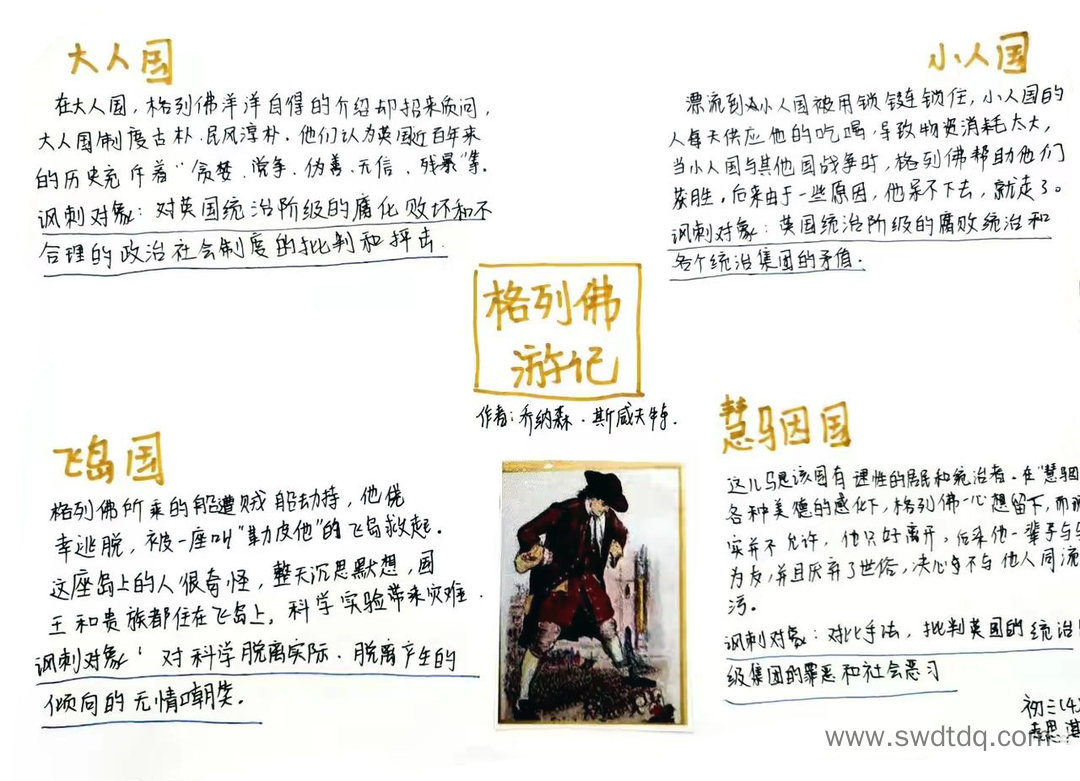 大人国
在大人国，格列佛洋洋自得的介绍却招来质问，
大人国制度古朴、民风淳朴。他们认为英国近百年来
的历史充斥着“贪婪、党争、伪善、无信、残暴”等。
讽刺对象：对英国统治阶级的腐化败坏和不
合理的政治社会制度的批判和抨击.
小人国
漂流到小人国被用锁链锁住，小人国的
人每天供应他的吃喝，导致物资消耗太大，
当小人国与其他国战争时，格列佛帮助他们
获胜。后来由于一些原因，他呆不下去，就走了。
讽刺对象：英国统治阶级的腐败统治和
各个统治集团的矛盾.
格列佛
游记
作者：乔纳森·斯威夫特.
飞岛国
格列佛所乘的船遭贼船劫持，他侥
幸逃脱，被一座叫“勒皮他”的飞岛救起。
这座岛上的人很奇怪，整天沉思默想，国
王和贵族都住在飞岛上。科学实验带来灾难.
讽刺对象：对科学脱离实际、脱离产生的
倾向的无情嘲笑。
慧骃国
这儿马是该国有理性的居民和统治者。在“慧骃
各种美德的感化下，格列佛一心想留下，而
实并不允许，他只好离开，后来他一辈子与
为友，并且厌弃了世俗，决心争不与他人同流
污。
讽刺对象：对比手法，批判英国的统治
级集团的罪恶和社会恶习
初三(4)
www.swdtdq.com